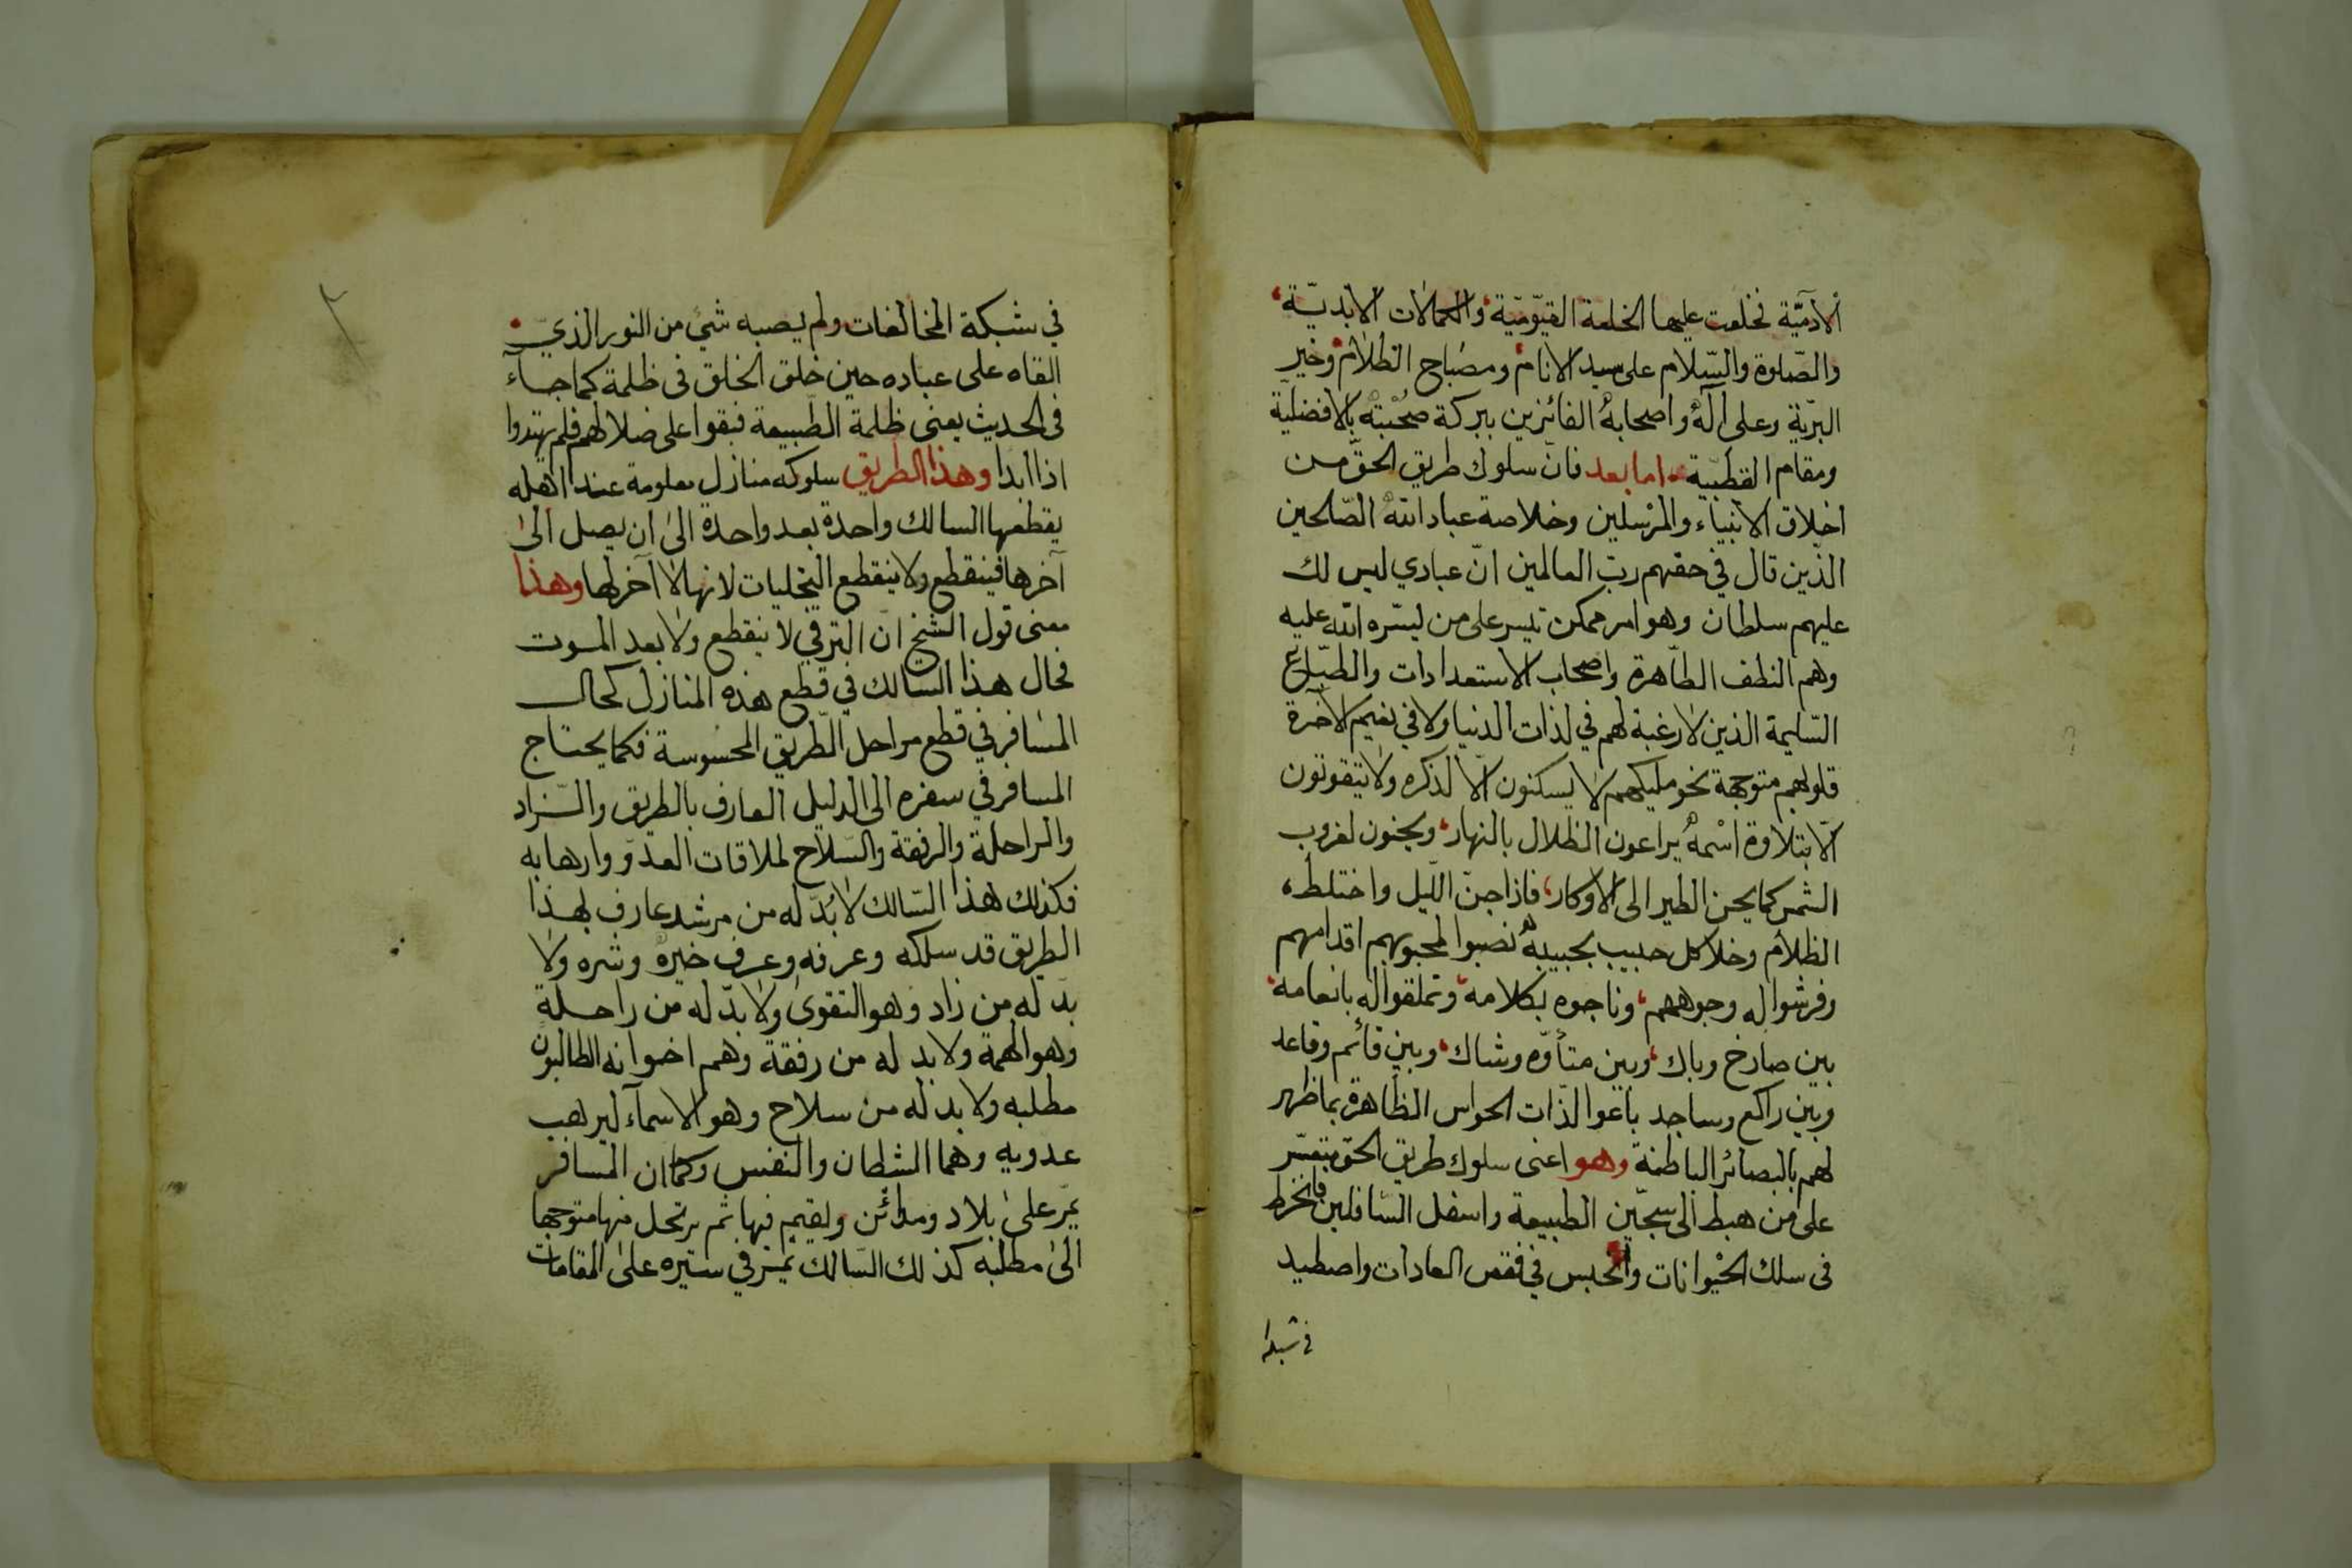 الآدميّة فخلعت عليها الخلعة القيّوميّة والكمالات الابديّة
والصّلوة والسّلام على سيد الانام ومصباح الظلام وخير
البرّية وعلى آله واصحابه الفائزين ببركة صحبته بالافضليّة
ومقام القطبيّة اما بعد فانّ سلوك طريق الحقّ من
اخلاق الانبياء والمرسلين وخلاصة عباد الله الصّالحين
الذين قال في حقهم ربّ العالمين انّ عبادي ليس لك
عليهم سلطان وهو امر ممكن تيسر على من يسّره الله عليه
وهم النطف الطّاهرة واصحاب الاستعدادات والطبّاع
السّليمة الذين لا رغبة لهم في لذات الدنيا ولا في نعيم الآخرة
قلوبهم متوجهة نحو مليكهم لا يسكنون الّا لذكره ولا يتقوتون
الّا بتلاوة اسمه يراعون الظلال بالنهار ويحنون لغروب
الشمس كما يحن الطير الى الاوكار فاذا جنّ اللّيل واختلط
الظلام وخلا كل حبيب بحبيبه نصبوا لمحبوبهم اقدامهم
وفرشوا له وجوههم وناجوه بكلامه وتملقوا له بانعامه
بين صارخ وباك وبين متأوّه وشاك وبين قائم وقاعد
وبين راكع وساجد باعوا لذّات الحواس الظاهرة بما ظهر
لهم بالبصائر الباطنة وهو اعنى سلوك طريق الحق متعسّر
على من هبط الى سجّين الطبيعة واسفل السّافلين فانخرط
فى سلك الحيوانات وانحبس في قفص العادات واصطيد
في شبكة
في شبكة المخالفات ولم يصبه شئ من النور الذي
القاه على عباده حين خلق الخلق فى ظلمة كما جاء
فى الحديث يعنى ظلمة الطّبيعة فبقوا على ضلالهم فلم يهتدوا
اذا ابدا وهذا الطريق سلوكه منازل معلومة عند اهله
يقطعها السالك واحدة بعد واحدة الى ان يصل الى
آخرها فينقطع ولا ينقطع التجليات لانها لا آخر لها وهذا
معنى قول الشيخ ان الترقي لا ينقطع ولا بعد الموت
فحال هذا السالك في قطع هذه المنازل كحال
المسافر في قطع مراحل الطّريق المحسوسة فكما يحتاج
المسافر في سفره الى الدليل العارف بالطريق والزاد
والراحلة والرفقة والسّلاح لملاقات العدوّ وارهابه
فكذلك هذا السّالك لا بدّ له من مرشد عارف بهذا
الطريق قد سلكه وعرفه وعرف خيره وشره ولا
بدّ له من زاد وهو التقوى ولا بدّ له من راحلة
وهو الهمة ولا بد له من رفقة وهم اخوانه الطالبون
مطلبه ولا بد له من سلاح وهو الاسمآء ليرهب
عدويه وهما الشطان والنفس وكما ان المسافر
يمّر على بلاد ومدائن ويقيم فيها ثم يرتحل منها متوجها
الى مطلبه كذلك السّالك يمّر في سيره على المقامات